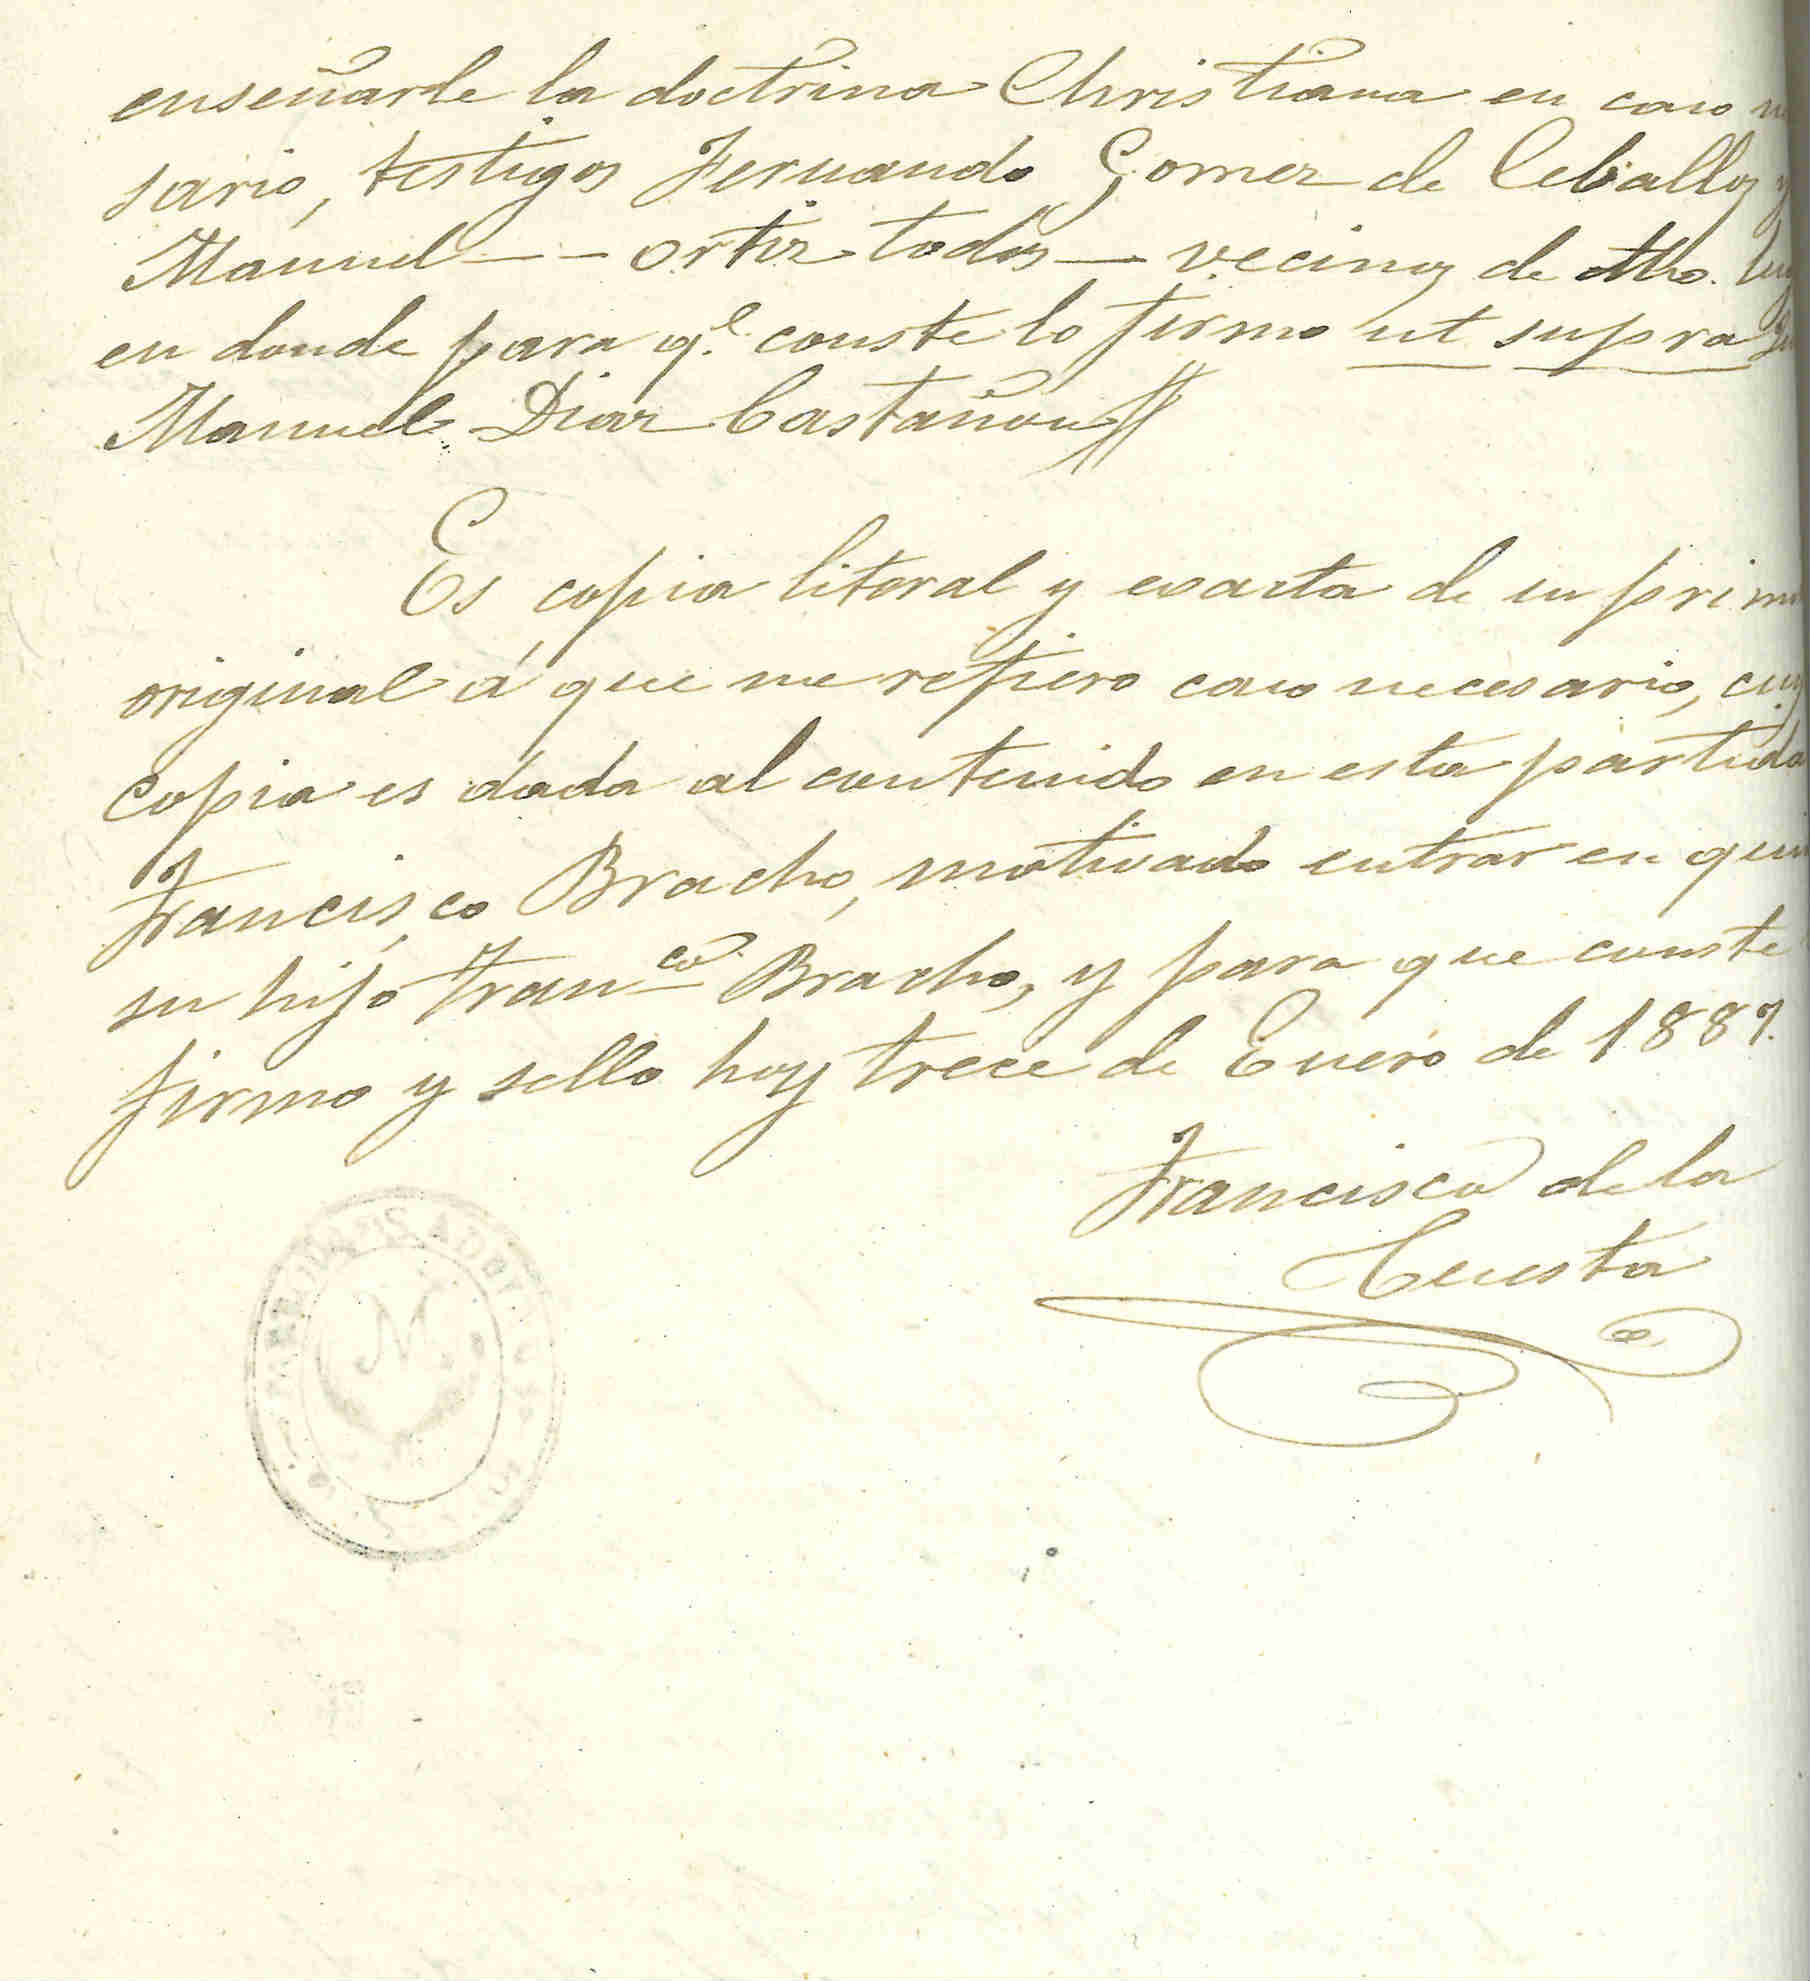 enseñarle la doctrina Christiana en caso
sario, testigos Fernando Gomez de Ceballos y
Manuel - - Ortiz todos - vecinos de dho.
en donde para q.e conste lo firmo ut supra
Manuel Diaz Castañon
Es copia literal y exacta de su
original á que me refiero caso necesario,
copia es dada al contenido en esta partida
Francisco Bracho, motivado entrar en
su hijo Fran.co Bracho, y para que conste
firmo y sello hoy trece de Enero de 1887.
Francisco de la
Cuesta
M